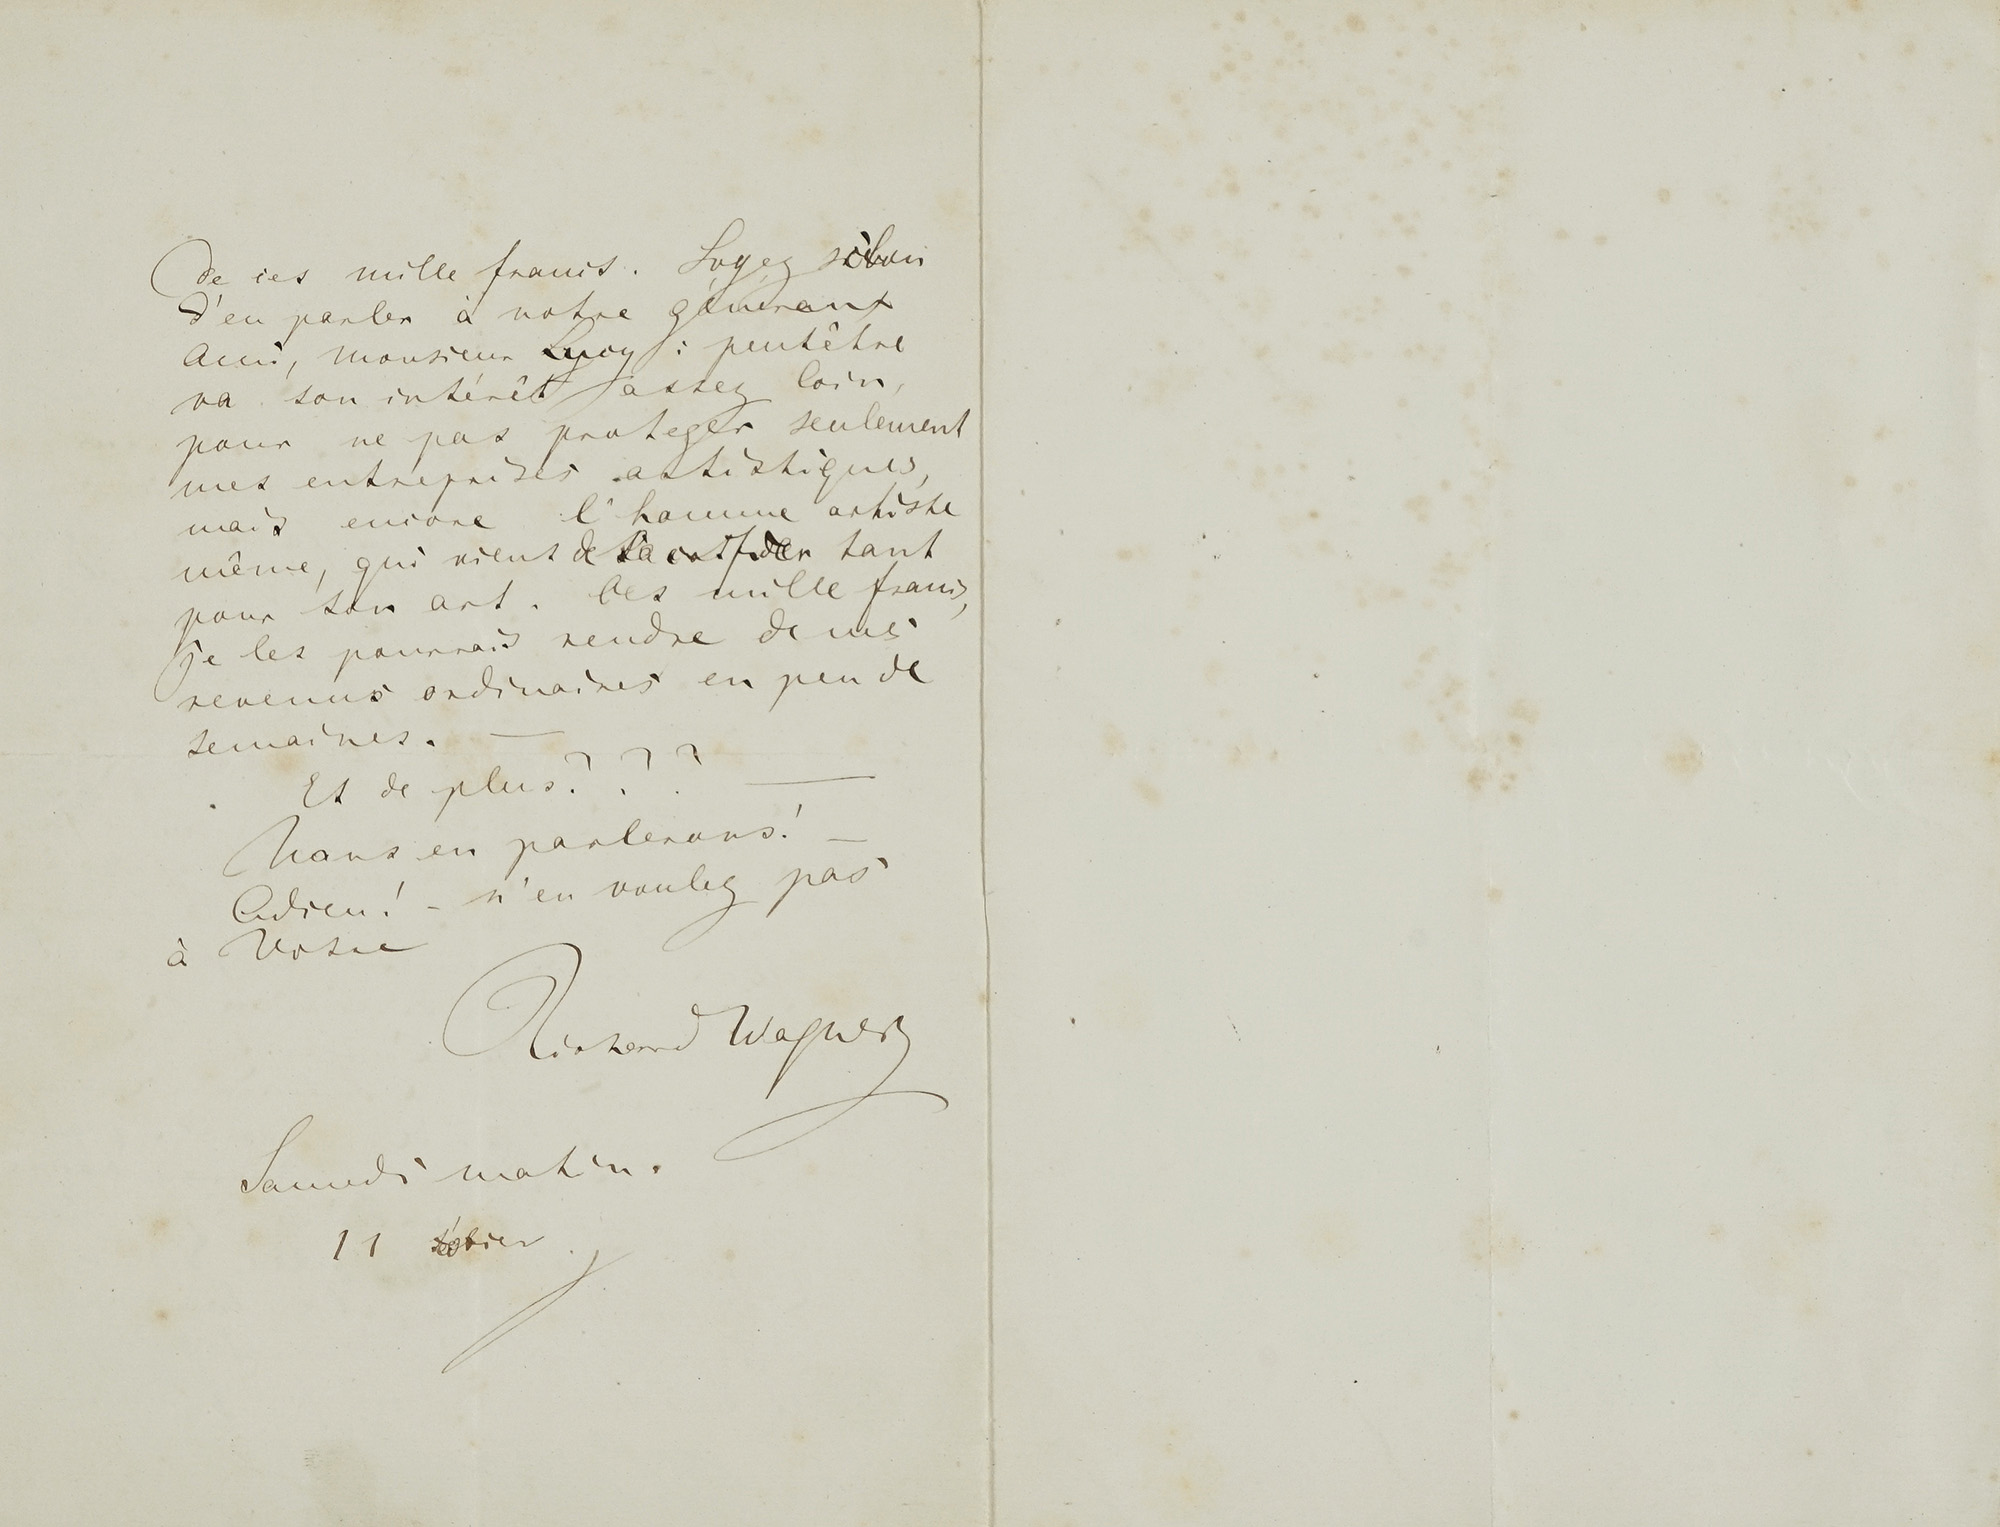 de ces mille francs. Soyez si bon
d'en parler à notre généreux
ami, monsieur Lucy : peutêtre
va son intérêt assez loin,
pour ne pas proteger seulement
mes entreprises artistiques,
mais encore l'homme artiste
même, qui vient de sacrifier tant
pour son art. Ces mille francs,
je les pourrais rendre de mes
revenus ordinaires en peu de
semaines. —
Et de plus? ? ? —
Nous en parlerons! —
Adieu! – n'en voulez pas
à Votre
Richard Wagner
Samedi matin.
11 février